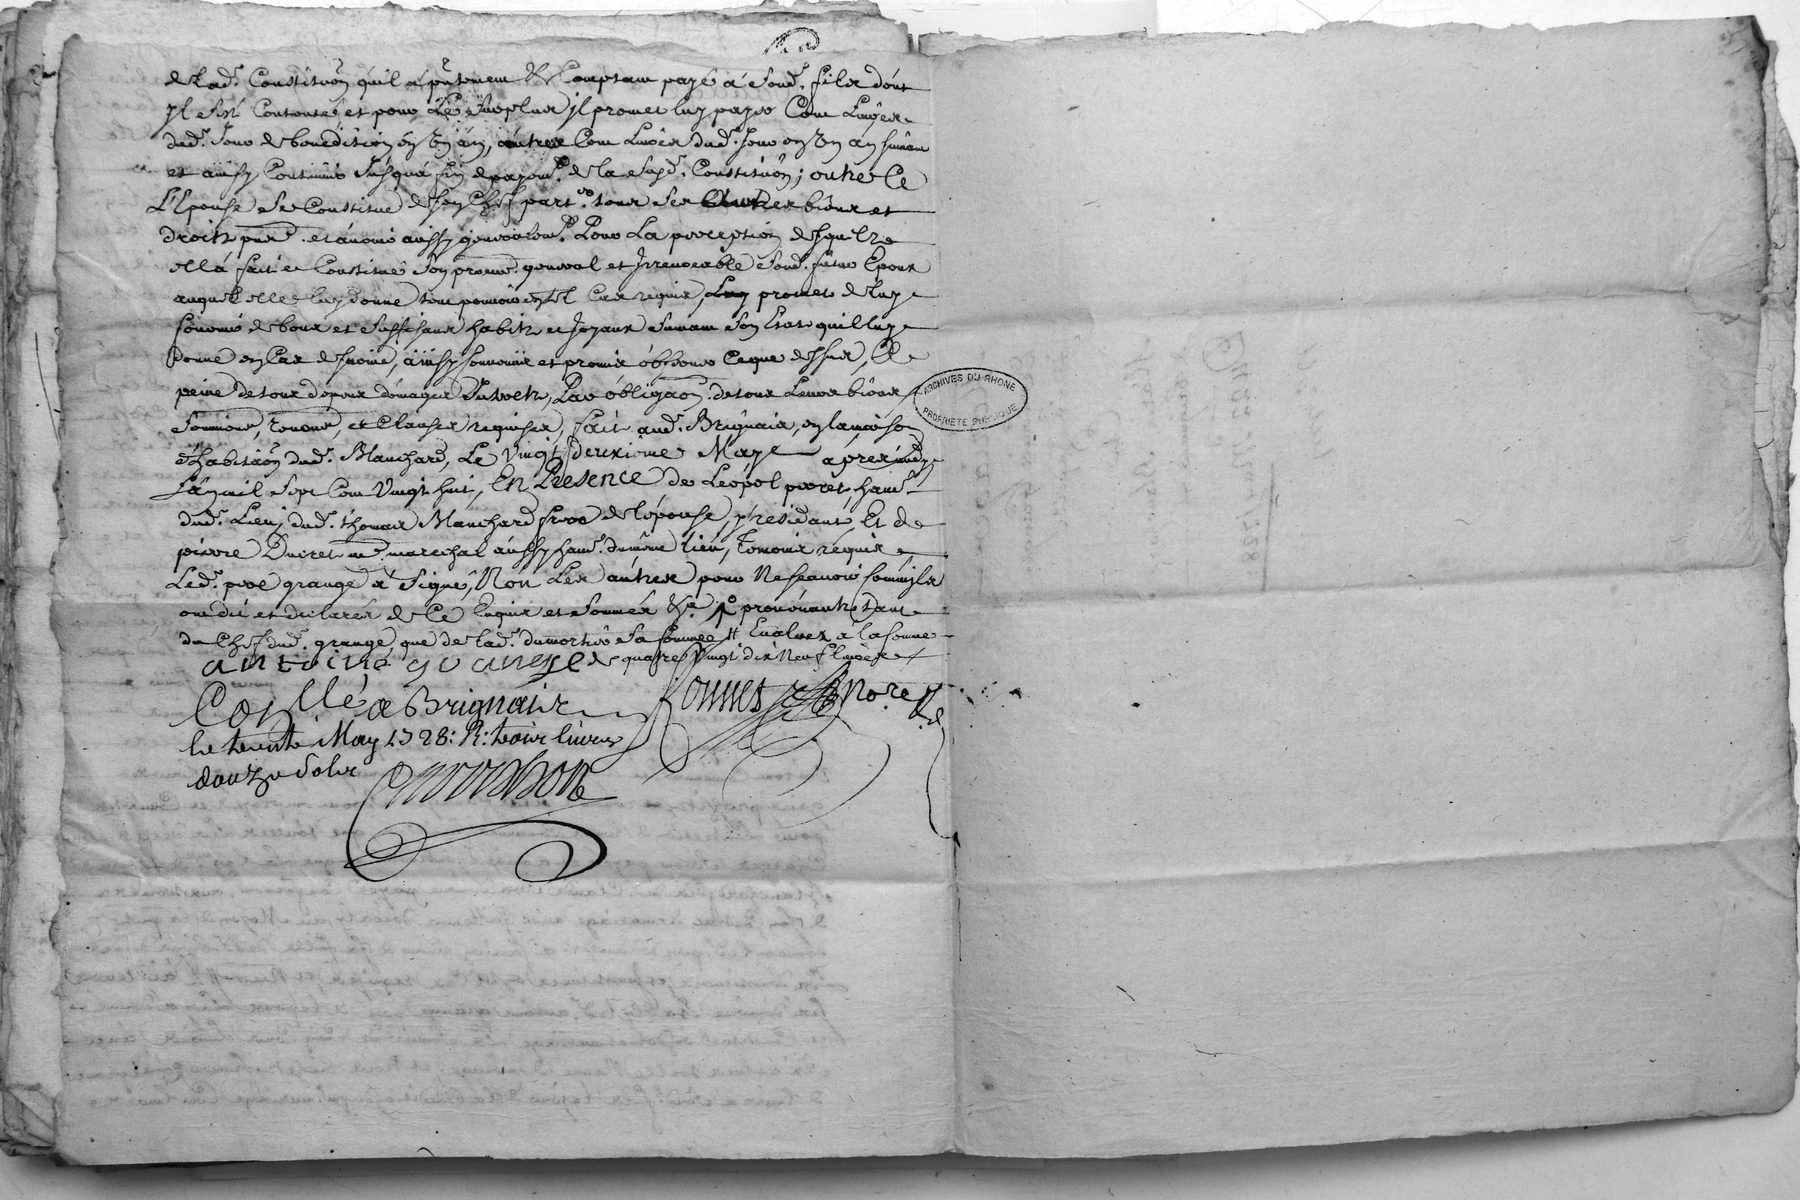 de lad. Constituõn quil a pñtement & Comptam payé a Sond. fils dont
yl est Contente, et pour le Surplus yl promet luy payer Cent Livres
dud. Jour de benedition en Un an, autres Cent Livres dud. Jour en Un an suivant
et ainsy Continuer Jusqua fin de payem. de la susd. Constituõn; outre Ce
L'Epouse se Constitue de son Chef part. tous ses autres biens et
droits pns. et avenir aussy generalem. Pour La perception desquels
ella fait et Constitué Son procur. general et Jrrevocable Sond. futur Epoux
auquel elle luy donne tout pouvoir en tel Cas requis, promet de luy
fournir de bons et suffisans habits et Joyaux suivant Son Estat quil luy
donne en Cas de survie, ainsy Convenu et promis observer Ce que dessus, A
peine de tous depens domages Interets, Par obligaõn de tous Leurs biens
Soumions, renons, et Clauses requises, fait aud. Brignais, en la maison
d'habitaõn dud. Blanchard, Le Vingt deuxieme Maye apres midy
Lan mil Sept Cent Vingt huit, En Presence de Leopol perret, hant
dud. Lieu, dud. thomas Blanchard frere de lepouse, y residant, Et de
pierre Duiret me. marechal aussy hant. du même lieu, temoins requis
Led. pere grange a Signé, Non Les autres pour Ne Scavoir Comm'ils
ont dit et declarés de Ce Enquis et Sommés &a. provenants tant
du Chef dud. grange, que de lad. dumortier Sa femme # Evaluez a la Somme
de quatre Vingt dix Neuf livres
antoine grange
Collé a Brignais
Nore Rl
le trente May 1728: R: trois livres
douze Sols
ARCHIVES DU RHONE
PROPRIETE PUBLIQUE